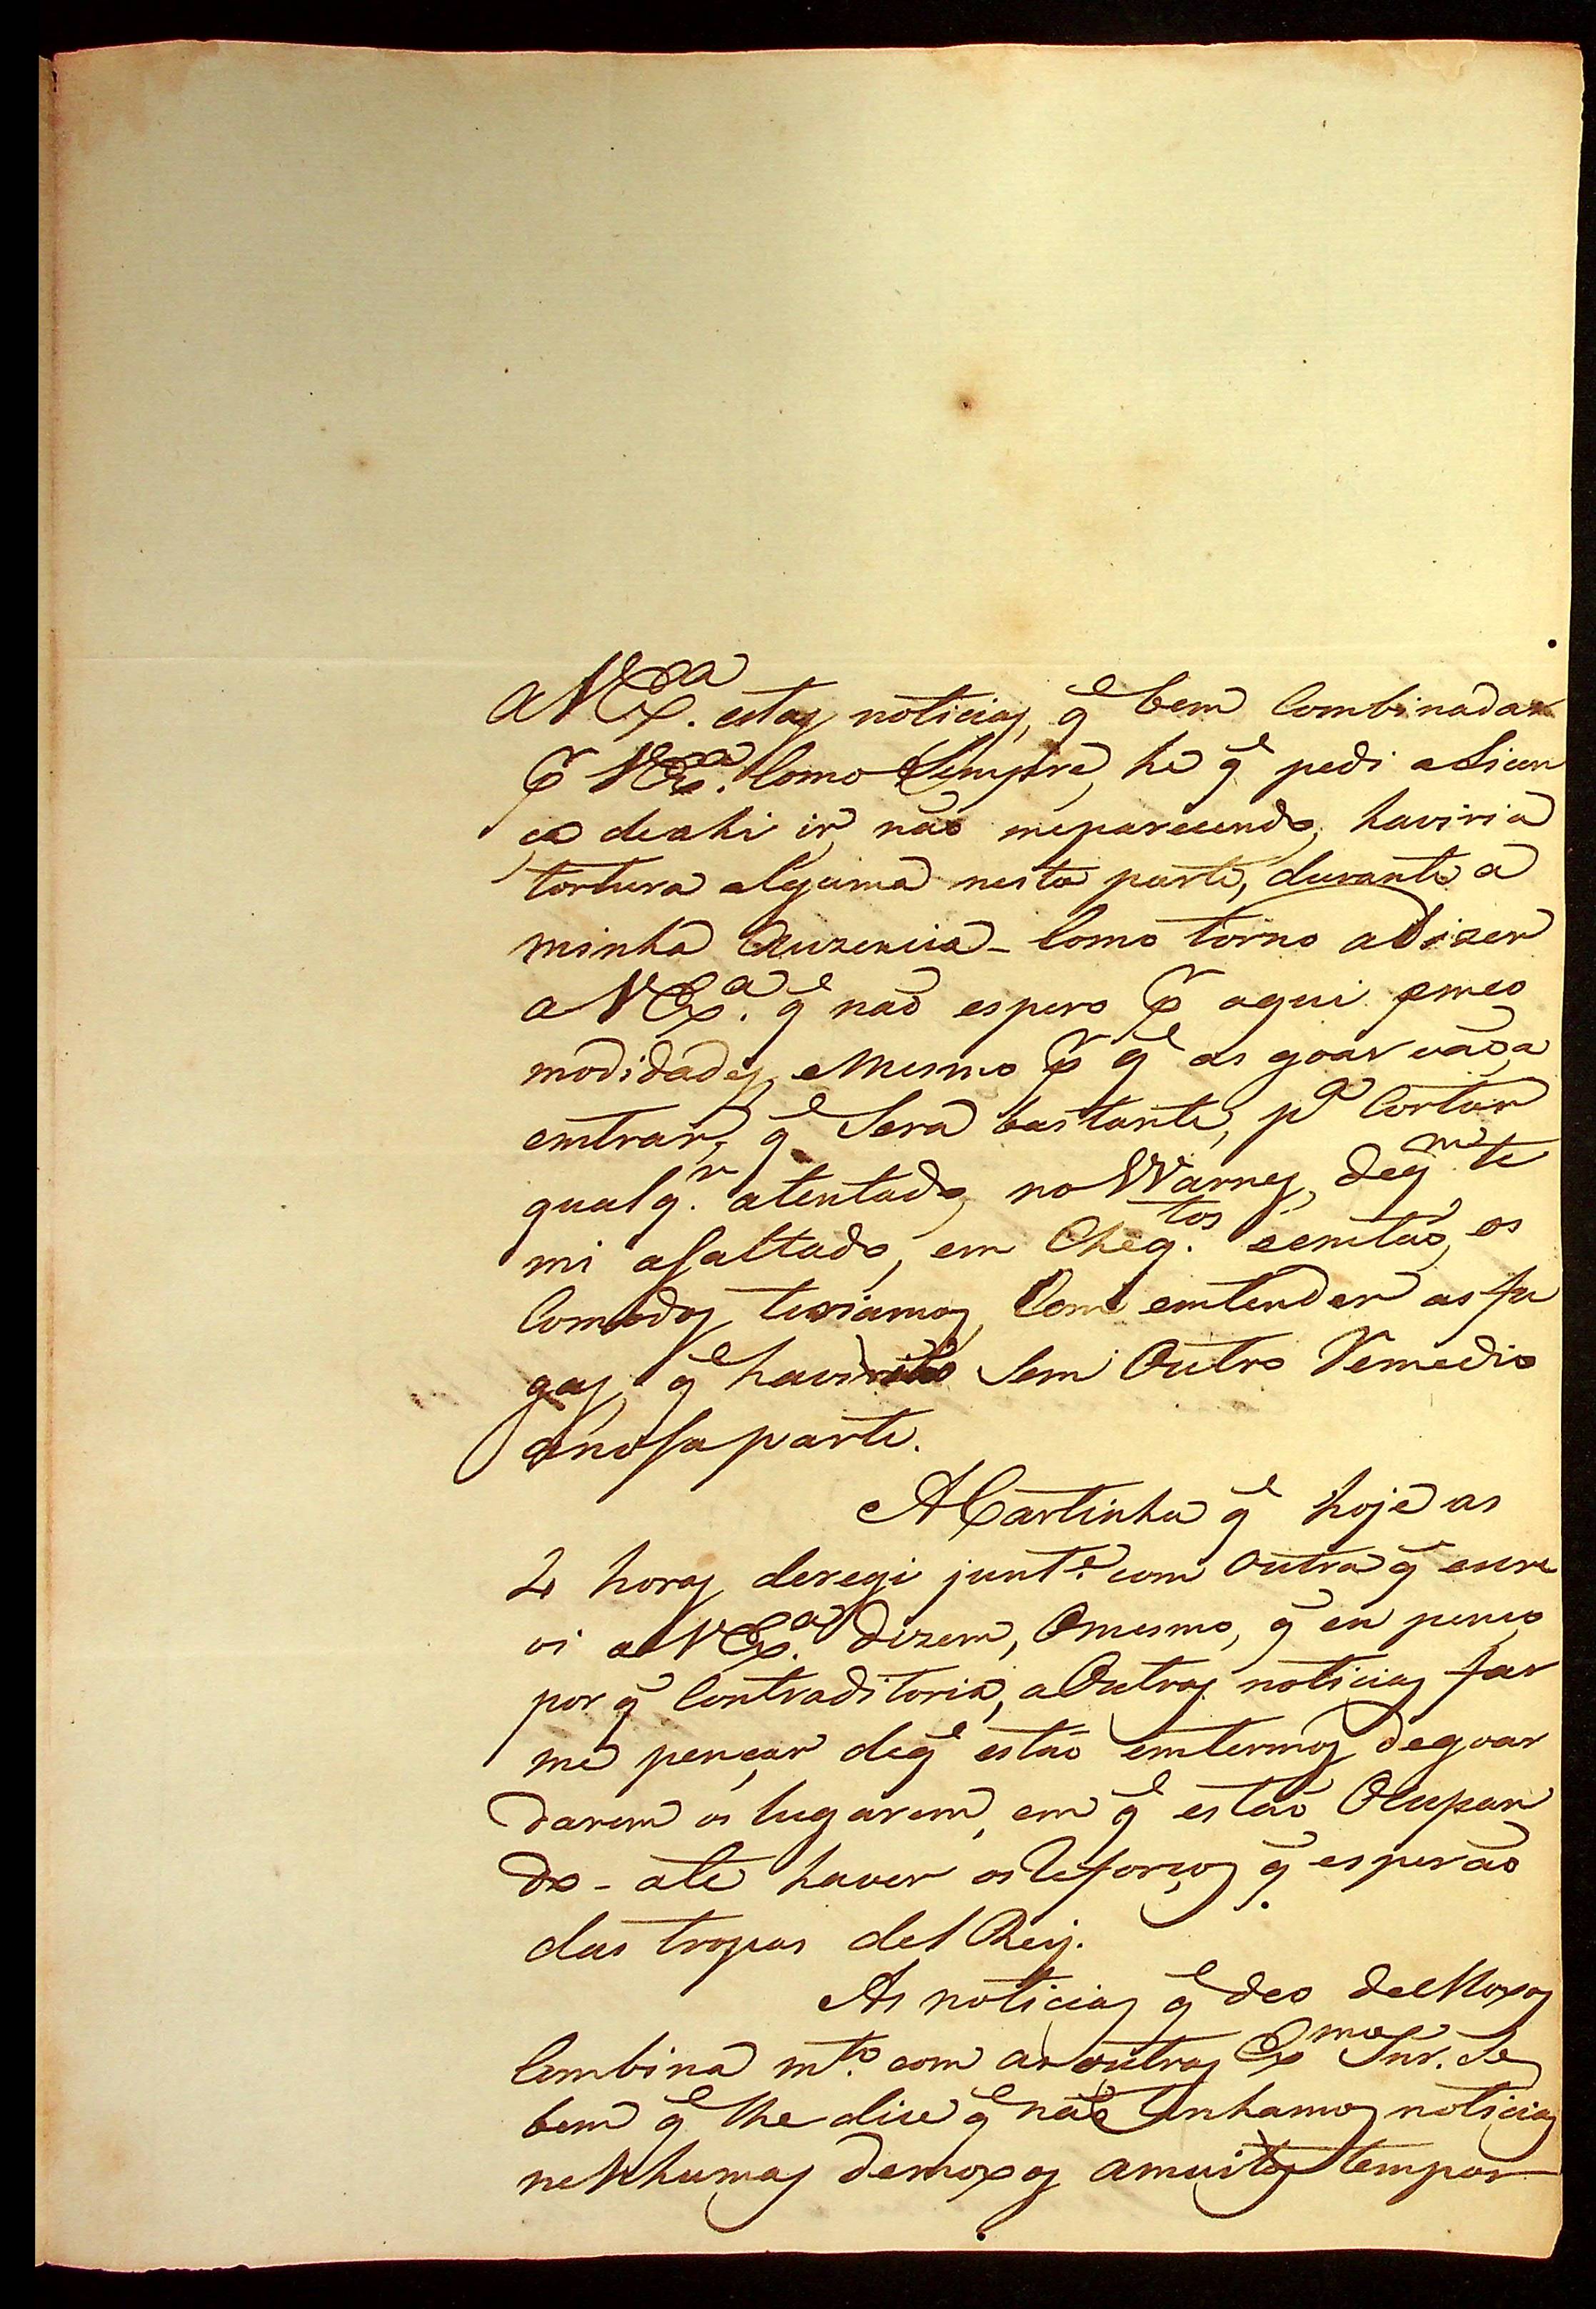 a VEx.ª estas noticias, q̃ bem Combinadas
p.r VEx.ª Como Sempre, he q̃ pedi a Licen
ça de ahi ir, não meparecendo, haviria
tortura alguma nesta parte, durante a
minha Auzencia - Como torno aDizer
a VEx.ª q̃ não espero p.r aqui
modidades, e Mesmo p.r q̃ as goar
emtrar, q̃ Sera bastante, p.ª Cortar
qualq.r atentado, no
mi asaltado, em Cheg.tos eemtão, os
Comodos teriamos, Com emtender as fu
gas, q̃ Sem Outro Remedio
anosa parte.
ACartinha q̃ hoje as
2 horas deregi junt.e com Outra q̃ escre
vi a VEx.ª dizem, Omesmo, q̃ eu penço
por q̃ Contraditoria, aOutras noticias faz
me pençar deq̃ estão emtermos degoar
darem os lugarem, em q̃ estão Ocupan
do - ate haver os Reforços q̃ esperão
das tropas delRey.
As noticias q̃ deo deMoxos
Combina m.to com as outras Ex.mo Snr. Se
bem q̃ lhe dice q̃ não tinhamos noticias
nehhumas demoxos amuitos tempos